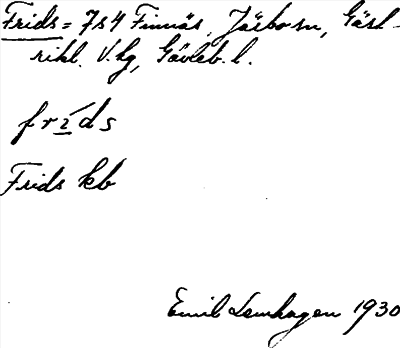 Frids = 7s4 Finnäs, Järbo sn, Gäst-
rikl. V. hg, Gävleb. l.
frids
Frids kb
Emil Lemhagen 1930